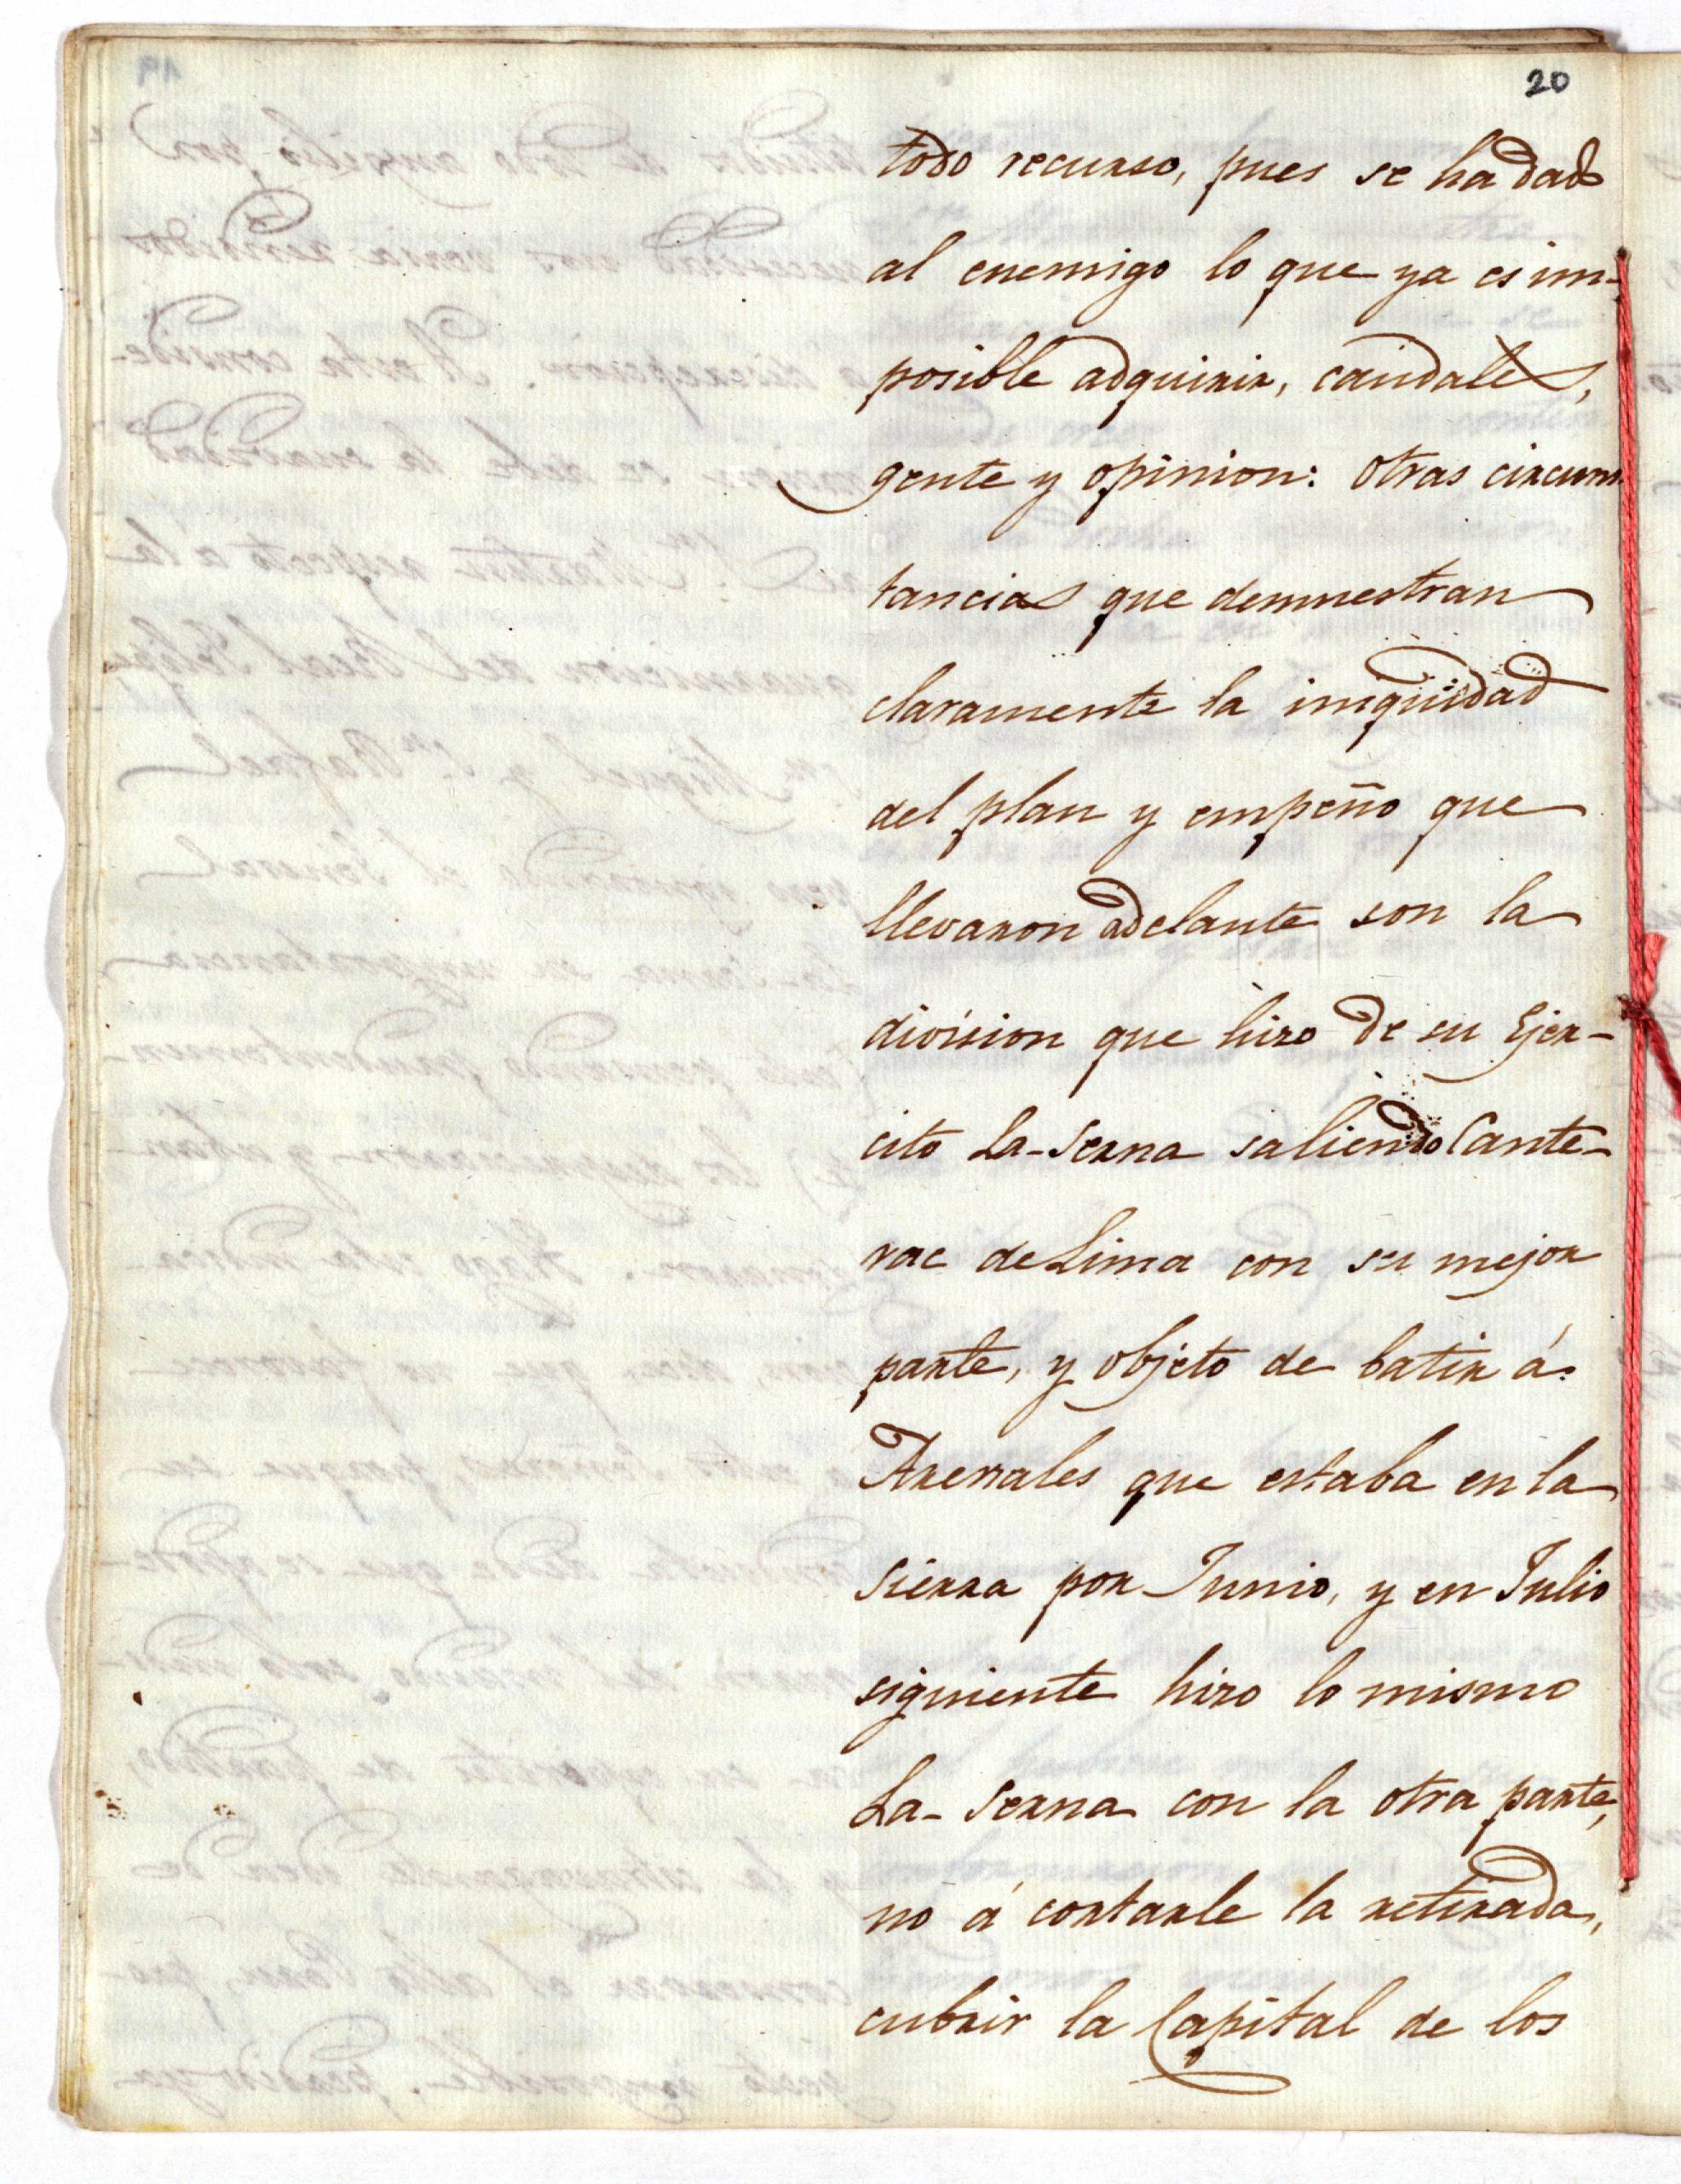 20
todo recurso, pues se ha dado
al enemigo lo que ya es im-
posible adquirir, caudales,
gente y opinion: otras circuns-
tancias que demuestran
claramente la iniqüidad
del plan y empeño que
llevaron adelante son la
division que hizo de su Ejer-
cito La-Serna saliendo Cante-
rac de Lima con su mejor
parte, y objeto de batir á
Arenales que estaba en la
sierra por Junio, y en Julio
siguiente hizo lo mismo
La-Serna con la otra parte,
no á cortarle la retirada,
cubrir la Capital de los